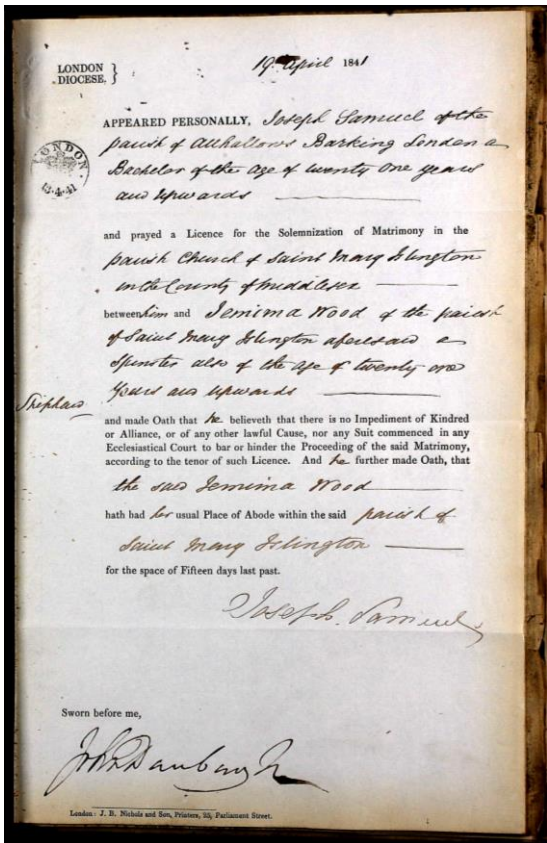 LONDON
DIOCESE. }
19 April 1841
APPEARED PERSONALLY, Joseph Samuel of the
parish of Allhallows Barking London a
Bachelor of the age of twenty one years
and upwards
LONDON
13·4·41
and prayed a Licence for the Solemnization of Matrimony in the
parish Church of Saint Mary Islington
in the County of Middlesex
between him and Jemima Wood of the parish
of Saint Mary Islington aforesaid a
Spinster also of the age of twenty one
years and upwards
Shephard
and made Oath that he believeth that there is no Impediment of Kindred
or Alliance, or of any other lawful Cause, nor any Suit commenced in any
Ecclesiastical Court to bar or hinder the Proceeding of the said Matrimony,
according to the tenor of such Licence. And he further made Oath, that
the said Jemima Wood
hath had her usual Place of Abode within the said parish of
Saint Mary Islington
for the space of Fifteen days last past.
Joseph Samuel
Sworn before me,
John
London: J. B. Nichols and Son, Printers, 25, Parliament Street.